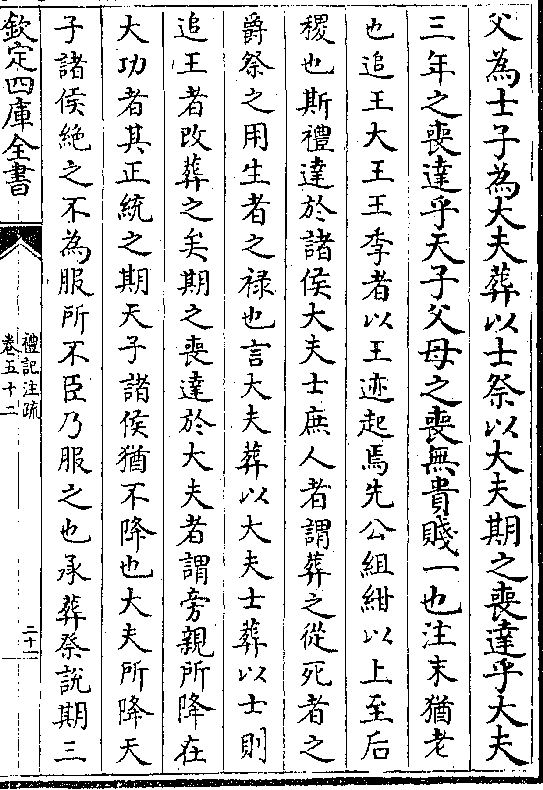 父為士子為大夫葬以士祭以大夫期之喪達乎大夫
三年之喪達乎天子父母之喪無貴賤一也注末猶老
也追王大王王季者以王迹起焉先公組紺以上至后
稷也斯禮達於諸侯大夫士庶人者謂葬之從死者之
爵祭之用生者之祿也言大夫葬以大夫士葬以士則
追王者改葬之矣期之喪達於大夫者謂旁親所降在
大功者其正統之期天子諸侯猶不降也大夫所降天
子諸侯絶之不為服所不臣乃服之也承葬祭說期三
欽定四庫全書
禮記注疏
卷五十二
二十一